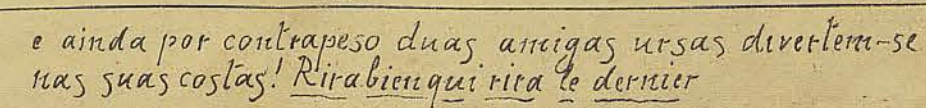 e ainda por contrapeso duas amigas ursas divertem-se
nas suas costas! Rira bien qui rira le dernier